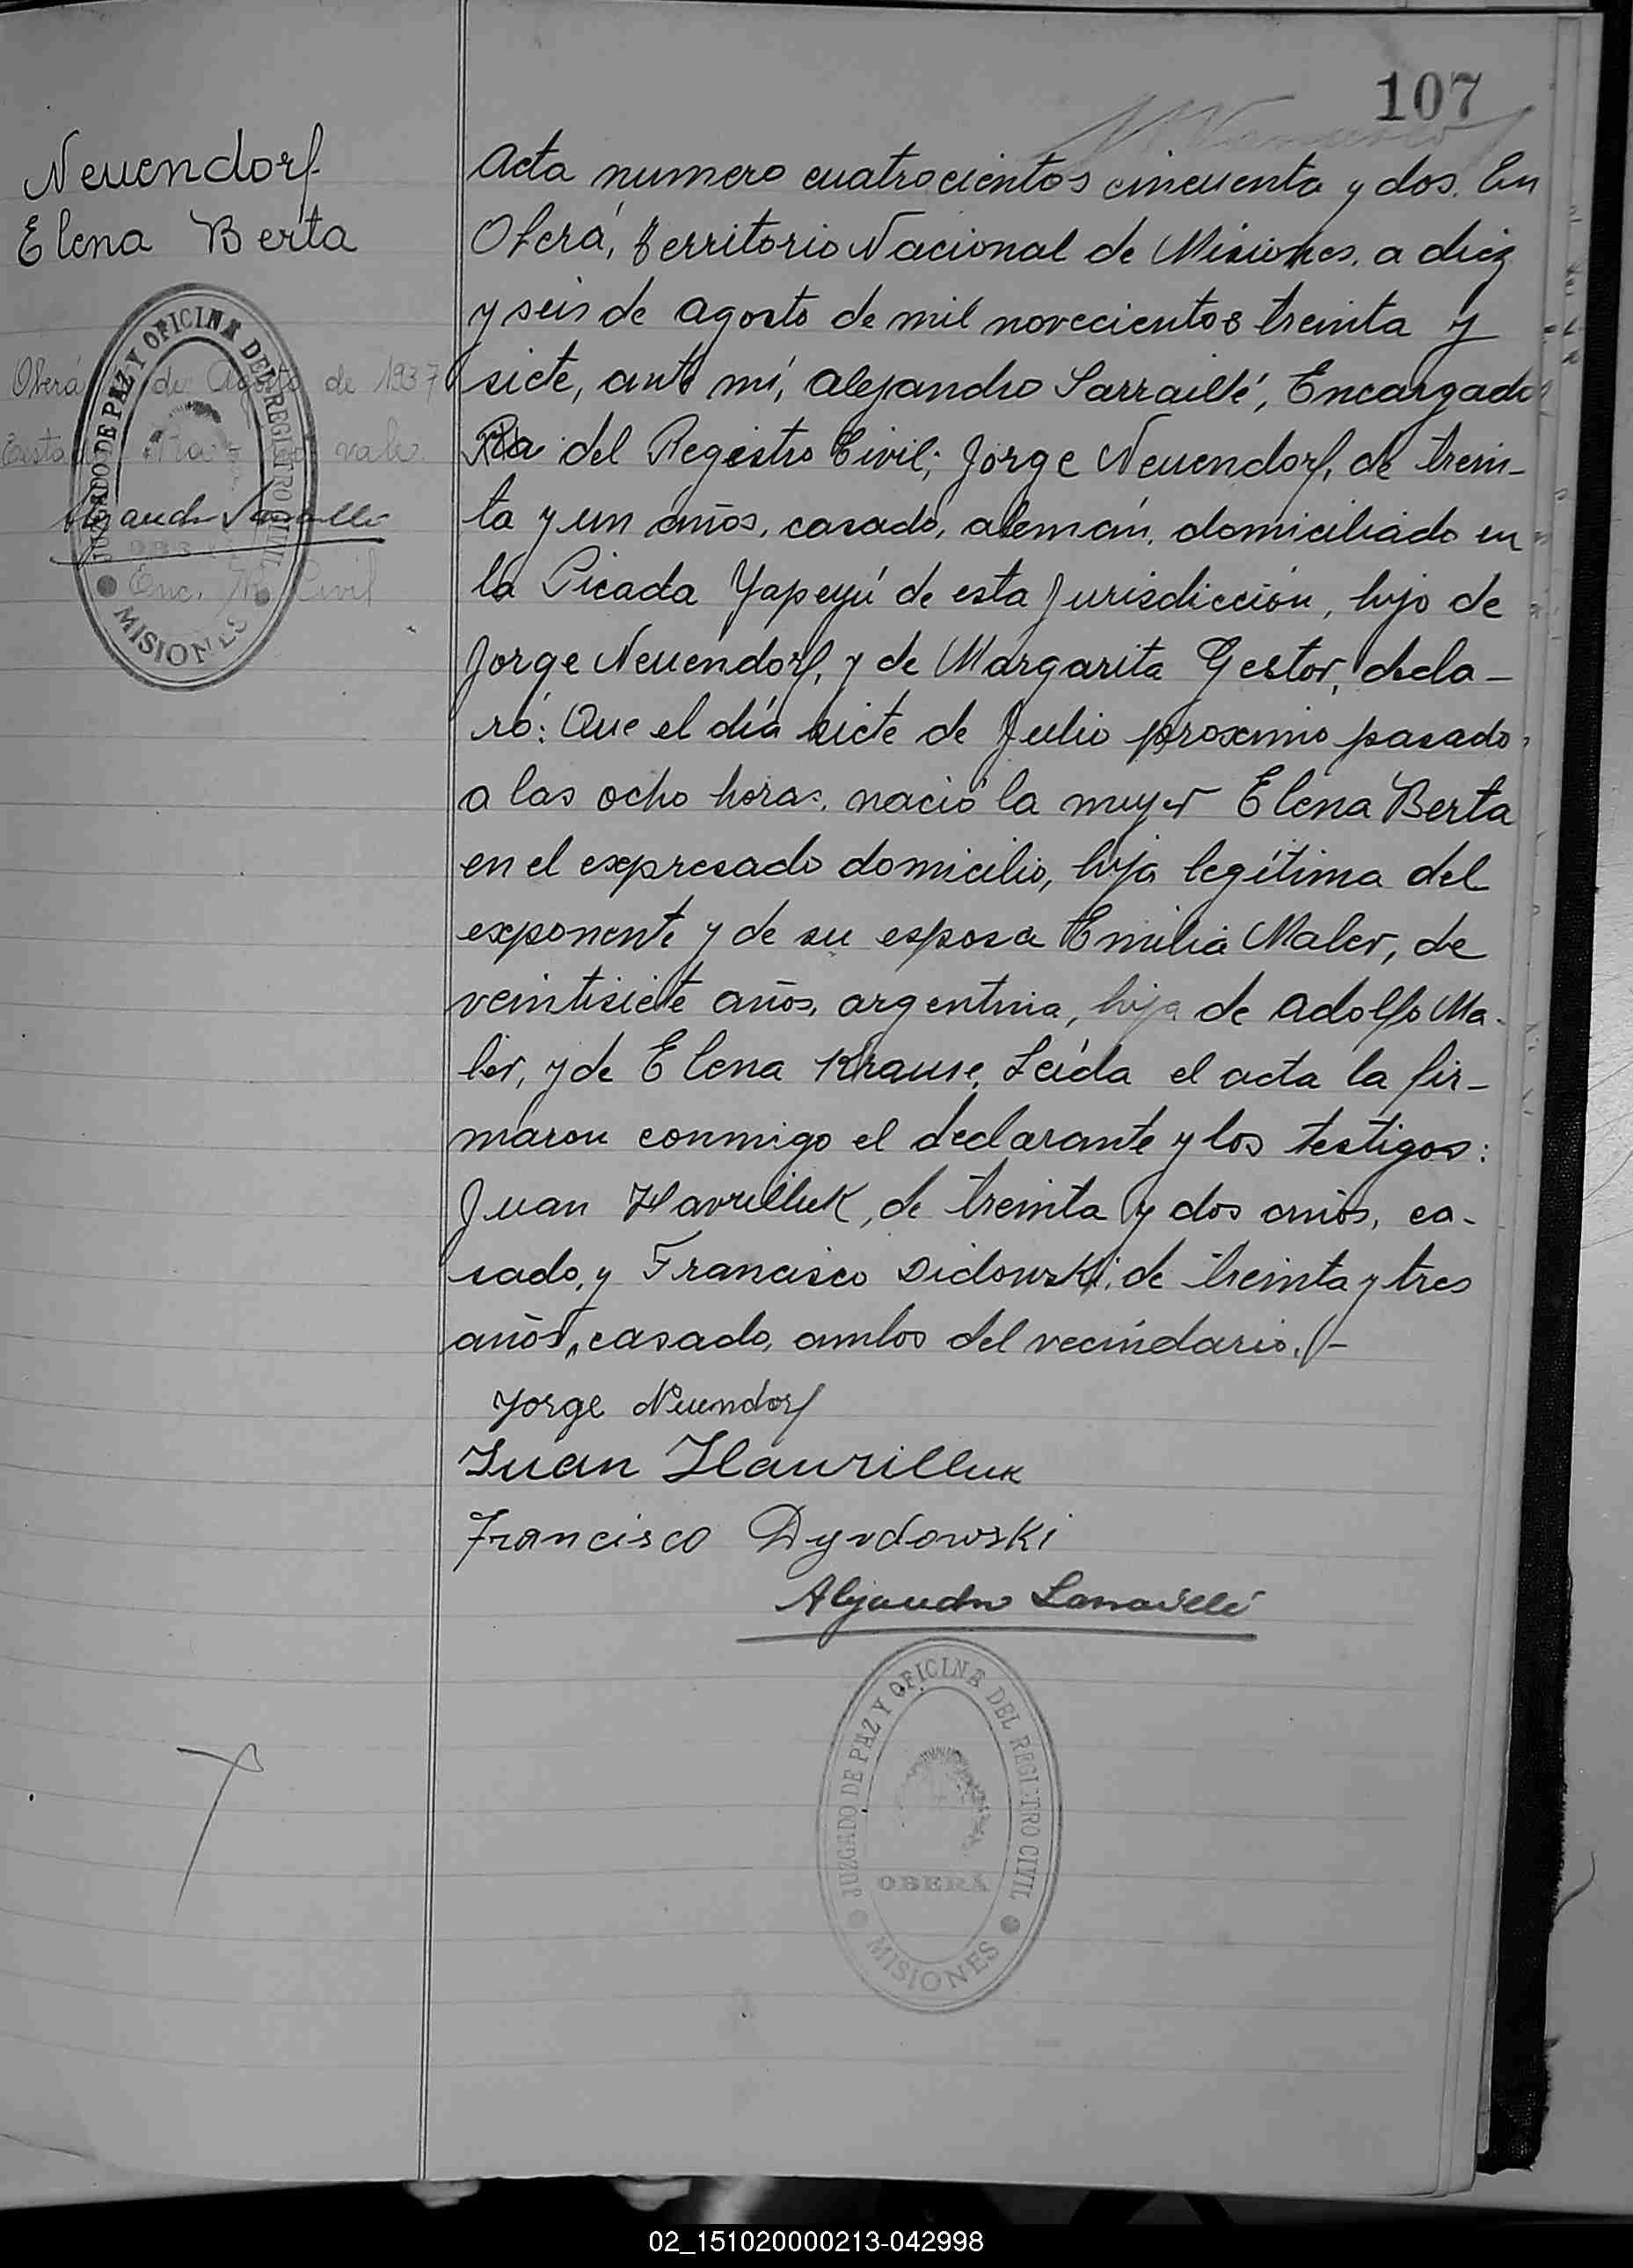 107
Neuendorf
Elena Berta
JUZGADO DE PAZ Y OFICINA DEL REGISTRO CIVIL
MISIONES
Oberá de Agosto de 1937
Ra vale
Alejandro Sarraillé
Enc. R. Civil
Acta numero cuatrocientos cincuenta y dos. En
Oberá, Territorio Nacional de Misiones, a diez
y seis de agosto de mil novecientos treinta y
siete, ante mí, Alejandro Sarraillé, Encargado
Ra del Registro Civil; Jorge Neuendorf, de trein-
ta y un años, casado, alemán, domiciliado en
la Picada Yapeyú de esta Jurisdicción, hijo de
Jorge Neuendorf, y de Margarita Gestor, decla-
ró: Que el día siete de Julio proximo pasado,
a las ocho horas, nació la mujer Elena Berta
en el expresado domicilio, hija legítima del
exponente y de su esposa Emilia Maler, de
veintisiete años, argentina, hija de Adolfo Ma-
ler, y de Elena Krause. Leída el acta la fir-
maron conmigo el declarante y los testigos:
Juan Havrilluk, de treinta y dos años, ca-
sado, y Francisco Didowski, de treinta y tres
años, casado, ambos del vecindario.-
Jorge Neuendorf
Juan Haurilluk
Francisco Dyvdowski
Alejandro Sarraillé
JUZGADO DE PAZ Y OFICINA DEL REGISTRO CIVIL
OBERÁ
MISIONES
02_151020000213-042998